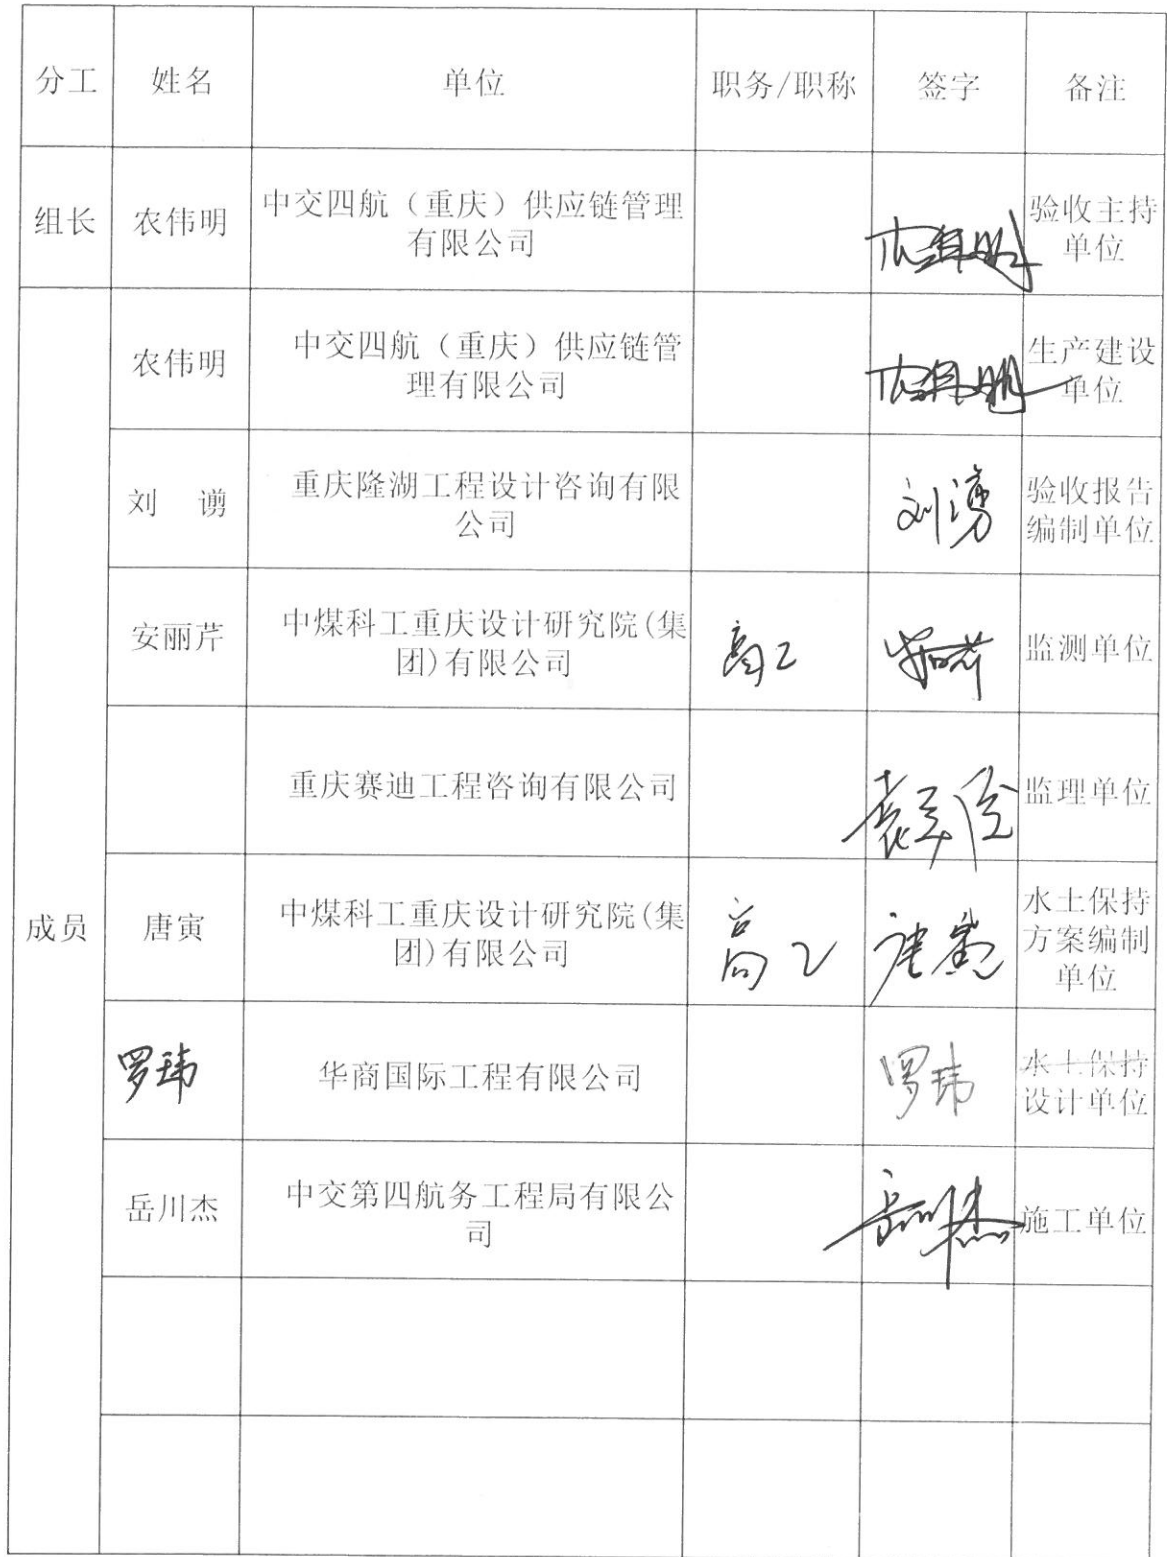 分工 姓名 单位 职务/职称 签字 备注
组长 农伟明 中交四航（重庆）供应链管理
有限公司
农伟明
验收主持
单位
成员
农伟明 中交四航（重庆）供应链管
理有限公司
农伟明
生产建设
单位
刘 谫 重庆隆湖工程设计咨询有限
公司
刘湧
验收报告
编制单位
安丽芹 中煤科工重庆设计研究院(集
团)有限公司
高工
监测单位
重庆赛迪工程咨询有限公司
监理单位
唐寅 中煤科工重庆设计研究院(集
团)有限公司
高工 唐寅
水土保持
方案编制
单位
罗玮 华商国际工程有限公司
罗玮
水土保持
设计单位
岳川杰 中交第四航务工程局有限公
司
岳川杰
施工单位